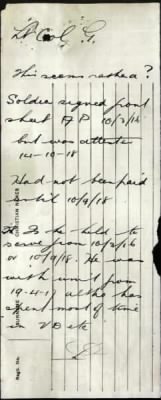 Lt Col G.
This seems rushed?
Soldier signed front
sheet A P 10/2/16
but was attested
14-10-18
Had not been paid
until 10/9/18
Is to be held to
serve from 10/2/16
or 10/9/18. He was
with unit from
19-4-17 altho has
spent most of time
in V D etc
CHRISTIAN NAMES
SURNAME
Regtl. No.